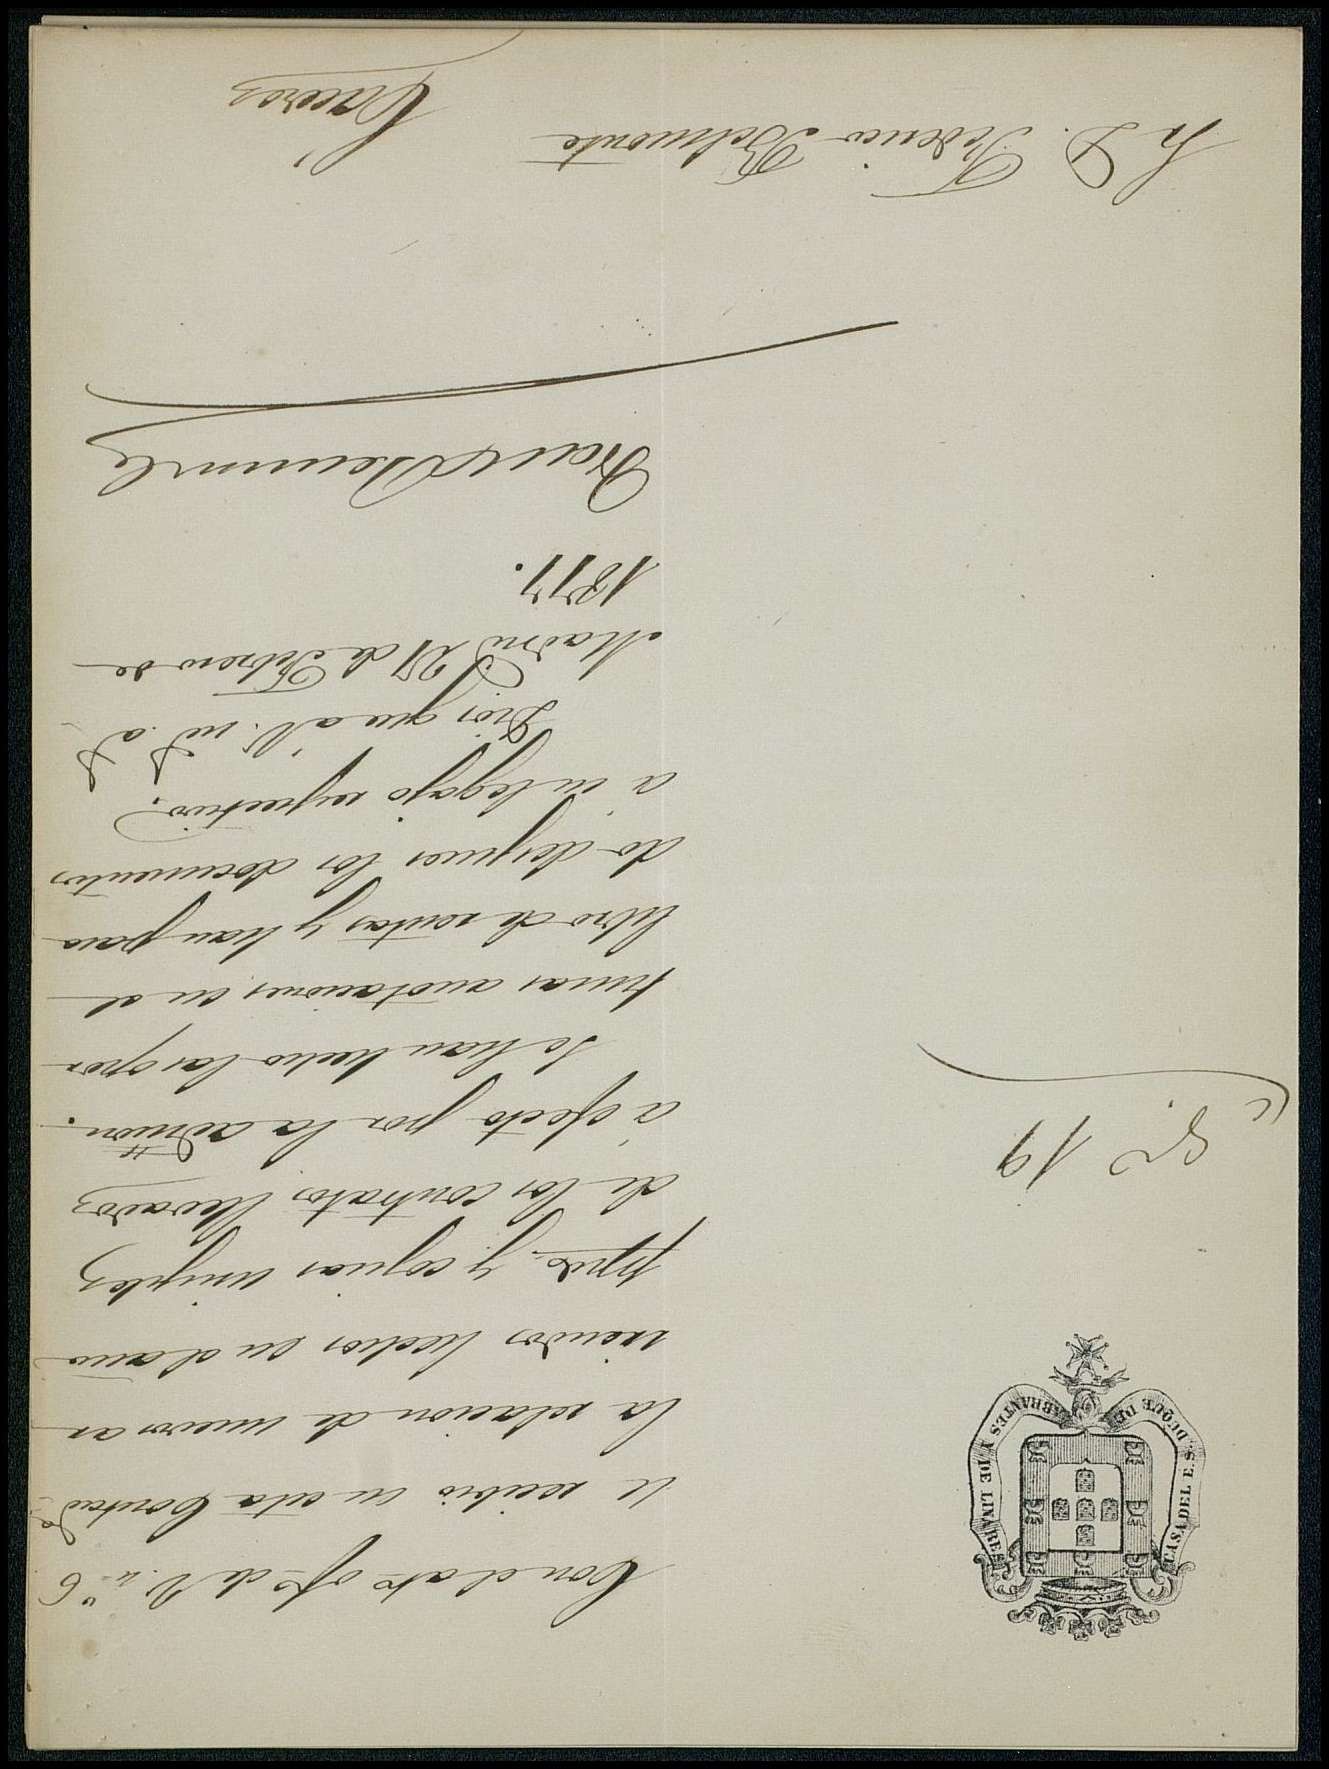 CASA DEL E.S. DUQUE DE ABRANTES Y DE LINARES
Nº 19
Con el atº ofº de V. nº 6
se recibió en esta Contadª
la relacion de nuevos ar-
riendos hechos en el año
ppdo. y copias simples
de los contratos llevados
á efecto por la admon.
Se han hecho las opor-
tunas anotaciones en el
libro de rentas y han pasa-
do despues los documentos
á su legajo respectivo.
Dios gue á V. ms. as.
Madrid 27 de Febrero de
1877.
Sr. D. Federico Belmonte
Cáceres